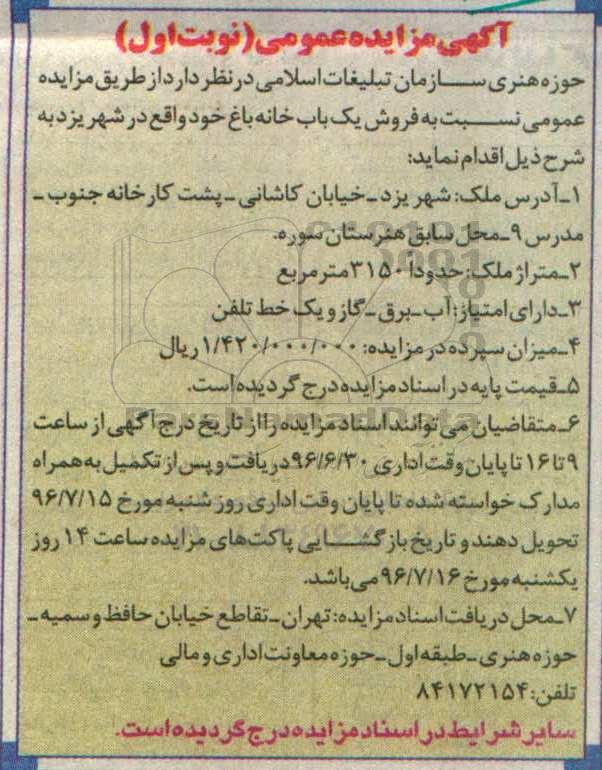 آگهی مزایده عمومی (نوبت اول)
حوزه هنری سازمان تبلیغات اسلامی در نظر دارد از طریق مزایده
عمومی نسبت به فروش یک باب خانه باغ خود واقع در شهر یزد به
شرح ذیل اقدام نماید:
۱ـ آدرس ملک: شهر یزد ـ خیابان کاشانی ـ پشت کارخانه جنوب ـ
مدرس ۹ ـ محل سابق هنرستان سوره.
۲ـ متراژ ملک: حدوداً ۳۱۵۰ متر مربع
۳ـ دارای امتیاز: آب ـ برق ـ گاز و یک خط تلفن
۴ـ میزان سپرده در مزایده: ۱/۴۲۰/۰۰۰/۰۰۰ ریال
۵ـ قیمت پایه در اسناد مزایده درج گردیده است.
۶ـ متقاضیان می توانند اسناد مزایده را از تاریخ درج آگهی از ساعت
۹ تا ۱۶ تا پایان وقت اداری ۹۶/۶/۳۰ دریافت و پس از تکمیل به همراه
مدارک خواسته شده تا پایان وقت اداری روز شنبه مورخ ۹۶/۷/۱۵
تحویل دهند و تاریخ بازگشایی پاکت‌های مزایده ساعت ۱۴ روز
یکشنبه مورخ ۹۶/۷/۱۶ می باشد.
۷ـ محل دریافت اسناد مزایده: تهران ـ تقاطع خیابان حافظ و سمیه ـ
حوزه هنری ـ طبقه اول ـ حوزه معاونت اداری و مالی
تلفن: ۸۴۱۷۲۱۵۴
سایر شرایط در اسناد مزایده درج گردیده است.
ParsNamadData